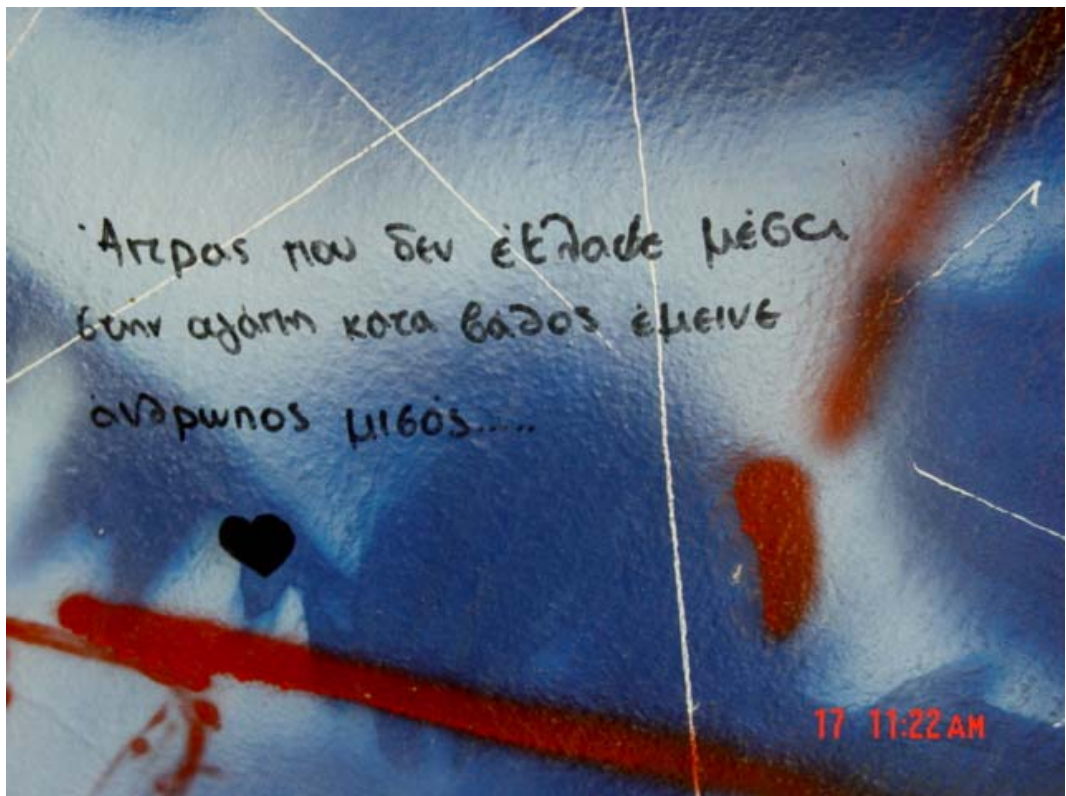 Άπρας που δεν έκλαψε μέσα
στην αγάπη κατα βάθος έμεινε
άνθρωπος μισός.....
17 11:22 AM